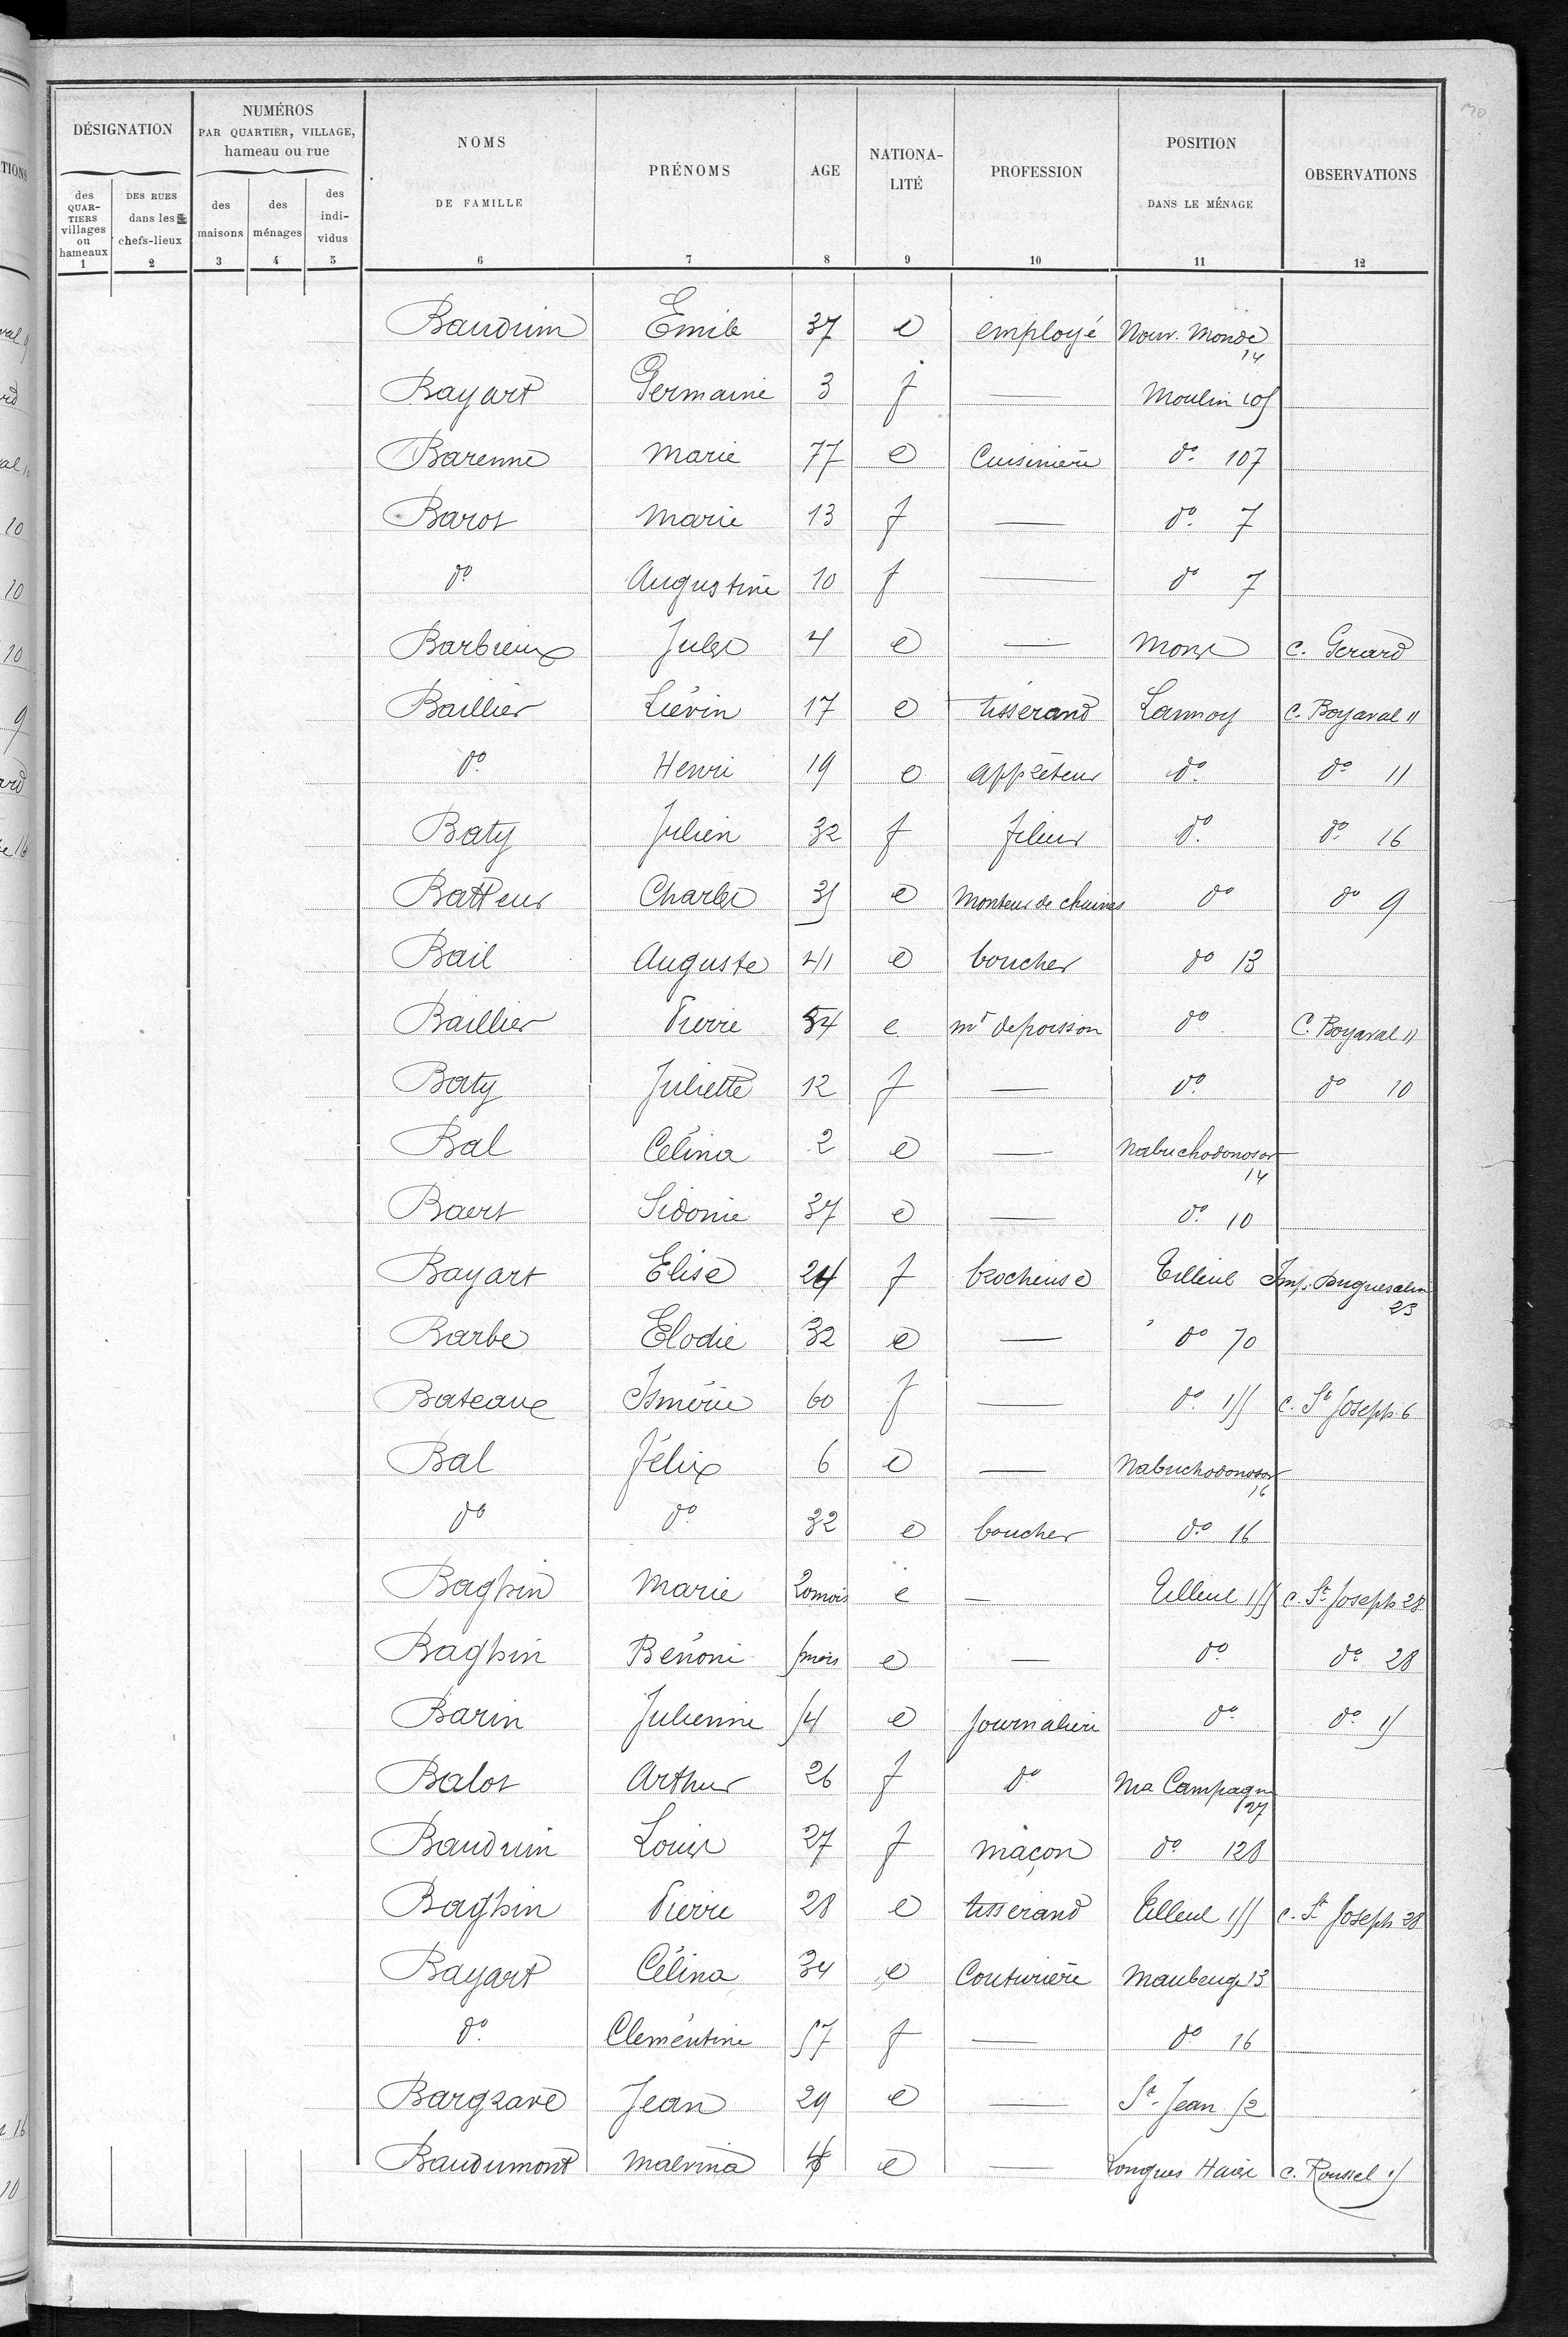 DÉSIGNATION NUMÉROS PAR QUARTIER, VILLAGE, hameau ou rue NOMS DE FAMILLE PRÉNOMS AGE NATIONA-LITÉ PROFESSION POSITION DANS LE MÉNAGE OBSERVATIONS
des QUAR-TIERS villages ou hameaux DES RUES dans les chefs-lieux des maisons des ménages des indi-vidus
1 2 3 4 5 6 7 8 9 10 11 12
Bauduin Emile 37 e employé Nouv. Monde 14
Bayart Germaine 3 f — Moulin 105
Barenne Marie 77 e Cuisinière d° 107
Barot Marie 13 f — d° 7
d° Augustine 10 f — d° 7
Barbieux Jules 4 e — Mons c. Gerard
Baillier Liévin 17 e tisserand Lannoy C. Boyaval 11
d° Henri 19 e appréteur d° d° 11
Baty Julien 32 f fileur d° d° 16
Batteur Charles 35 e Monteur de chaines d° d° 9
Bail Auguste 41 e boucher d° 13
Baillier Pierre 54 e md de poisson d° C. Boyaval 11
Baty Juliette 12 f — d° d° 10
Bal Célina 2 e — Nabuchodonosor 14
Baert Sidonie 37 e — d° 10
Bayart Elise 24 f brocheuse Tilleul Imp. Duguesclin 23
Barbe Elodie 32 e — d° 70
Bateaux Ismérie 60 f — d° 155 c. St Joseph 6
Bal Félix 6 e — Nabuchodonosor 16
d° d° 32 e boucher d° 16
Baghin Marie 20 mois e — Tilleul 155 c. St Joseph 28
Baghin Bénoni 5 mois e — d° d° 28
Barin Julienne 54 e Journalière d° d° 15
Balot Arthur 26 f d° Ma Campagne 27
Bauduin Louis 27 f maçon d° 128
Baghin Pierre 28 e tisserand Tilleul 155 c. St Joseph 28
Bayart Célina 34 e Couturière Maubeuge 13
d° Clémentine 57 f — d° 16
Bargzave Jean 29 e — St Jean 52
Baudumont Malvina e — Longues Haies c. Roussel 15